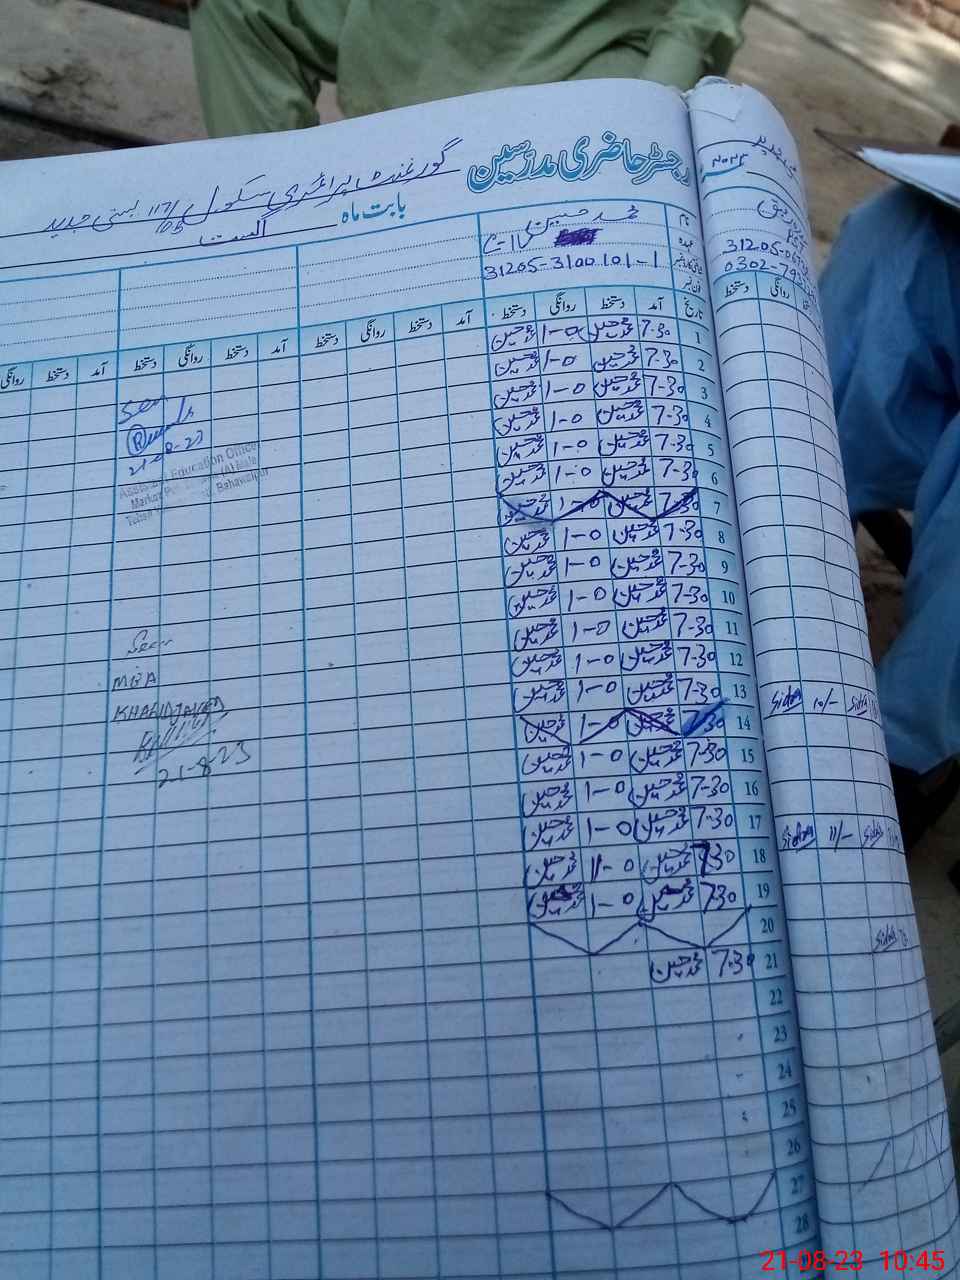 رجسٹر حاضری مدرسین
گورنمنٹ پرائمری سکول 117/DB بستی جدید
بابت ماہ اگست
نام محمد حسین
عہدہ
31205-3100101-1
تاریخ آمد دستخط روانگی دستخط آمد دستخط روانگی دستخط آمد دستخط روانگی دستخط آمد دستخط روانگی
1 7-30 محمد حسین 1-0 محمد حسین
2 7-30 محمد حسین 1-0 محمد حسین
3 7-30 محمد حسین 1-0 محمد حسین
4 7-30 محمد حسین 1-0 محمد حسین
5 7-30 محمد حسین 1-0 محمد حسین
6 7-30 محمد حسین 1-0 محمد حسین
7 7-30 محمد حسین 1-0 محمد حسین
8 7-30 محمد حسین 1-0 محمد حسین
9 7-30 محمد حسین 1-0 محمد حسین
10 7-30 محمد حسین 1-0 محمد حسین
11 7-30 محمد حسین 1-0 محمد حسین
12 7-30 محمد حسین 1-0 محمد حسین
13 7-30 محمد حسین 1-0 محمد حسین
14 7-30 محمد حسین 1-0 محمد حسین
15 7-30 محمد حسین 1-0 محمد حسین
16 7-30 محمد حسین 1-0 محمد حسین
17 7-30 محمد حسین 1-0 محمد حسین
18 7-30 محمد حسین 11-0 محمد حسین
19 7-30 محمد حسین 1-0 محمد حسین
20
21 7-30 محمد حسین
22
23
24
25
26
27
28
Seen
21-8-23
Assistant Education Officer
Bahawalpur
Seen
MEA
KHALID JAVED
21-8-23
31205-06
0302-79
روانگی دستخط
Sidra 10/- Sidra
Sidra 11/- Sidra
Sidra
21-08-23 10:45